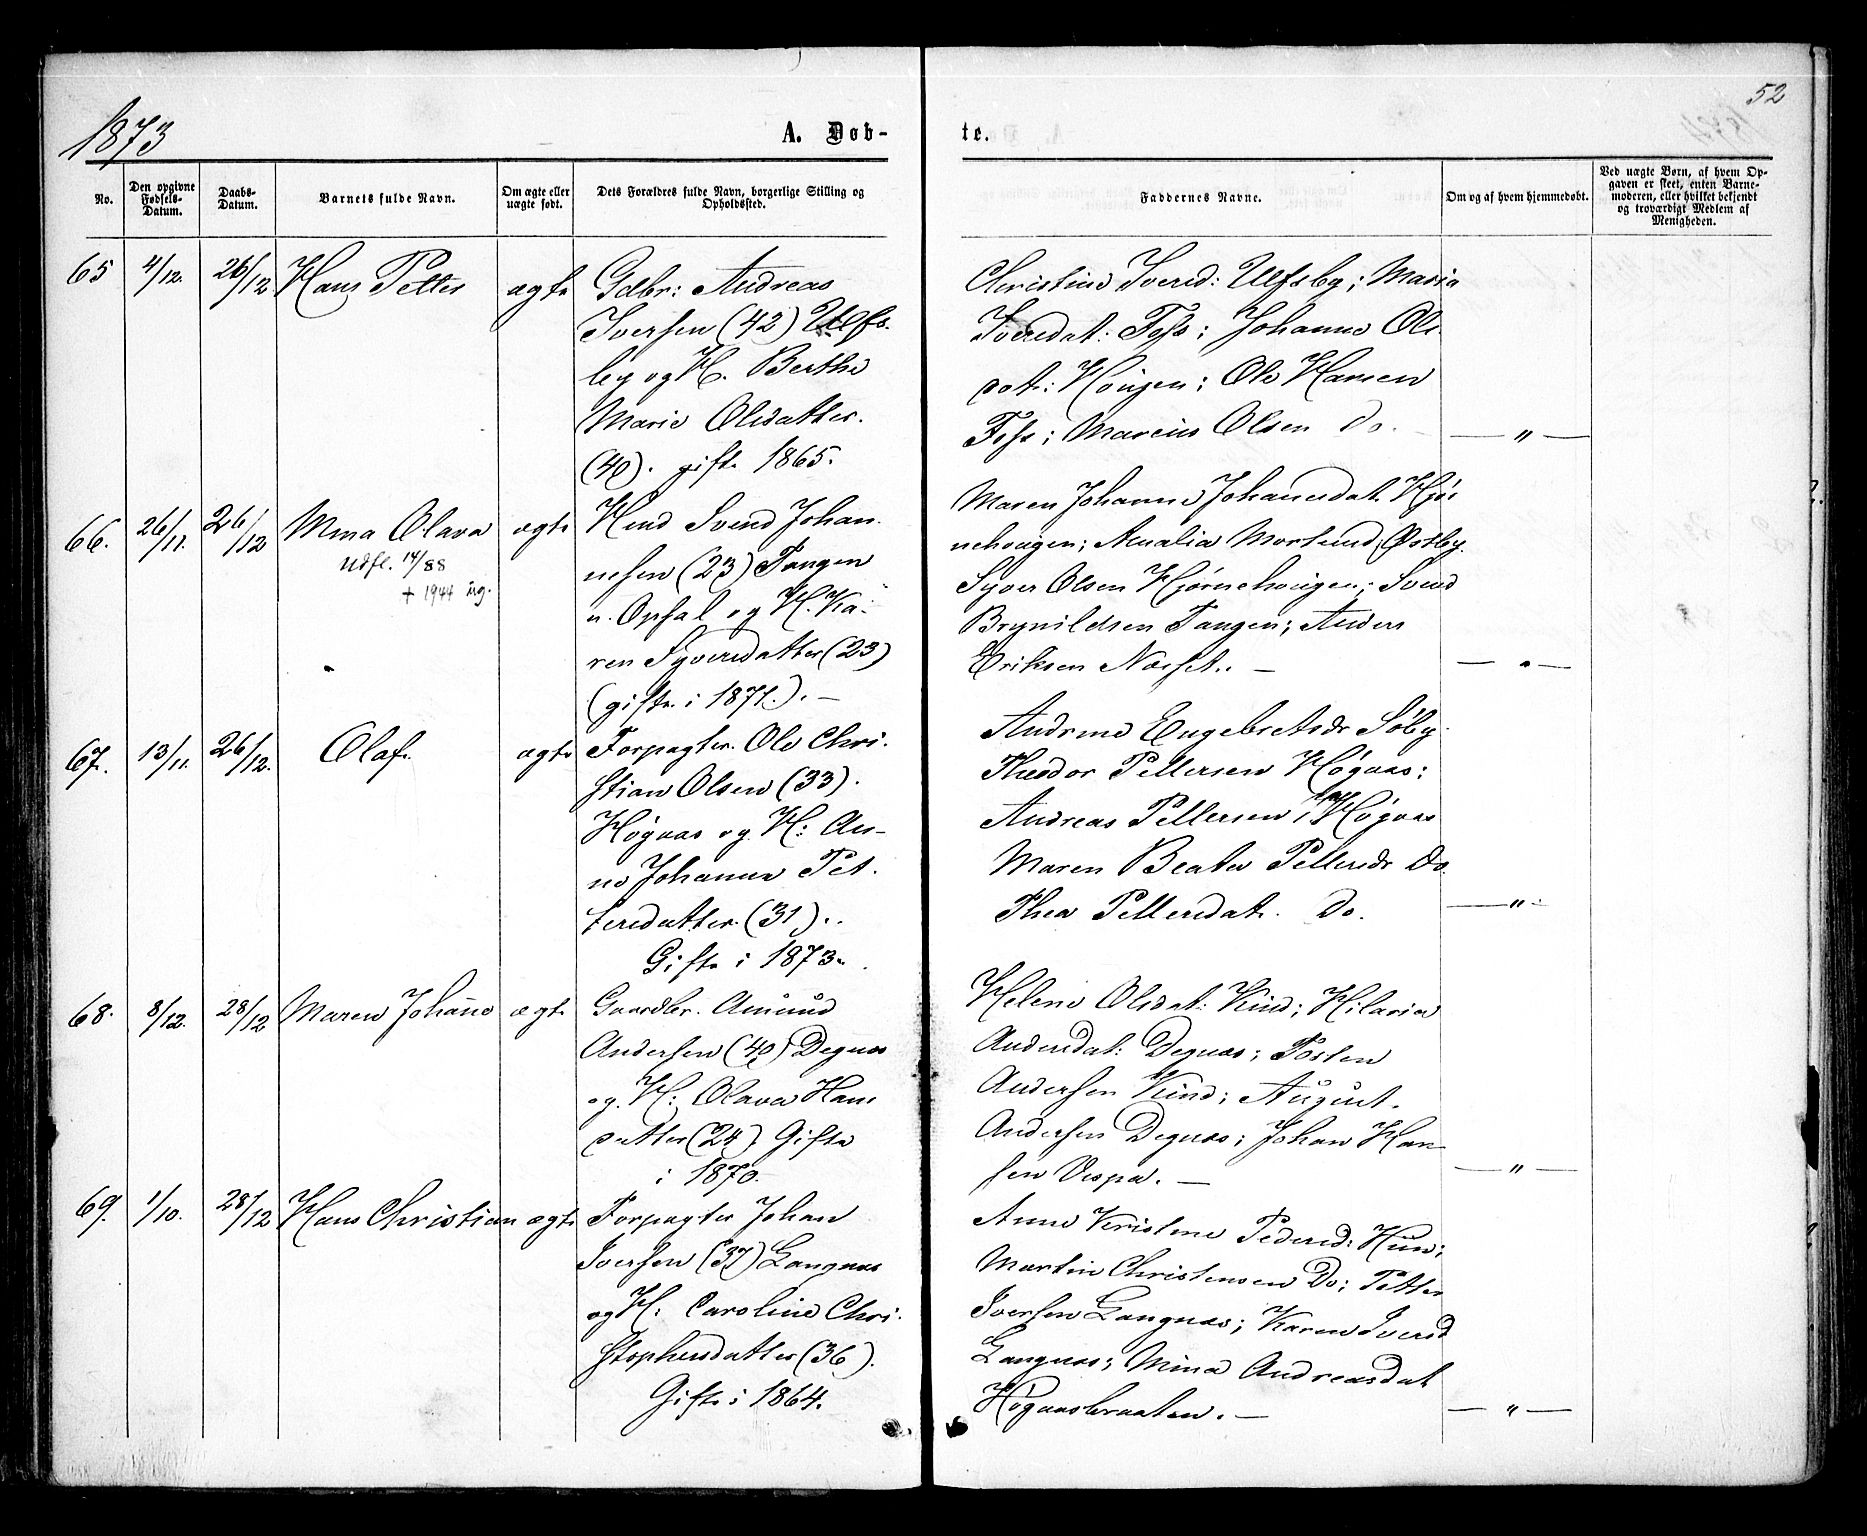 52
1873
A. Døb-
te.
No.
Den opgivne Fødsels-Datum.
Daabs-Datum.
Barnets fulde Navn.
Om ægte eller uægte født.
Dets Forældres fulde Navn, borgerlige Stilling og Opholdssted.
Faddernes Navne.
Om og af hvem hjemmedøbt.
Ved uægte Børn, af hvem Opgaven er skeet, enten Barnemoderen, eller hvilket bekjendt og troværdigt Medlem af Menigheden.
65 4/12. 26/12 Hans Petter ægte
Gdbr: Andreas
Iversen (42) Ulfs-
by og H. Berthe
Marie Olsdatter.
(40). gift 1865.
Christine Iversd: Ulfsby; Maria
Iversdat: Foss; Johanne Ols
dat: Hougen; Ole Hansen
Foss; Marcius Olsen Do.
— " —
66. 26/11. 26/12 Mina Olava ægte
Udfl. 14/88
+ 1944
Hmd Svend Johan
nesen (23) Tangen
u. Opsal og H. Ka-
ren Syversdatter (23)
(gift i 1871.). —
Maren Johanne Johannesdat. Hjør
nehougen; Amalia Morlund, Østby.
Syver Olsen Hjørnehougen; Svend
Brynildsen Tangen; Anders
Eriksen Næset. —
— " —
67. 13/11. 26/12. Olaf. ægte
Forpagter. Ole Chri-
stian Olsen (33).
Høgaas og H: An-
ne Johanne Pet-
tersdatter (31).
Gifte i 1873.
Andrine Engebretsdr Søby.
Theodor Pettersen Høgaas;
Andreas Pettersen Høgaas
Maren Beate Pettersdr Do.
Thea Pettersdat. Do.
— " —
68. 8/12. 28/12 Maren Johane ægte
Gaardbr. Amund
Andersen (40) Degnæs
og H: Olava Hans
datter (24) Gifte
i 1870.
Helene Olsdat: Kind; Hilaria
Andersdat: Degnæs; Tosten
Andersen Kind; August
Andersen Degnæs; Johan Han
sen Vespa. —
— " —
69. 1/10. 28/12 Hans Christian ægte
Forpagter Johan
Iversen (37) Langnæs
og H: Caroline Chri-
stophersdatter (36).
Gifte i 1864.
Anne Kristine Pedersd: Huun;
Martin Christensen Do; Petter
Iversen Langnæs; Karen Iversd
Langnæs; Mina Andreasdat
Høgaasbraaten. —
— " —